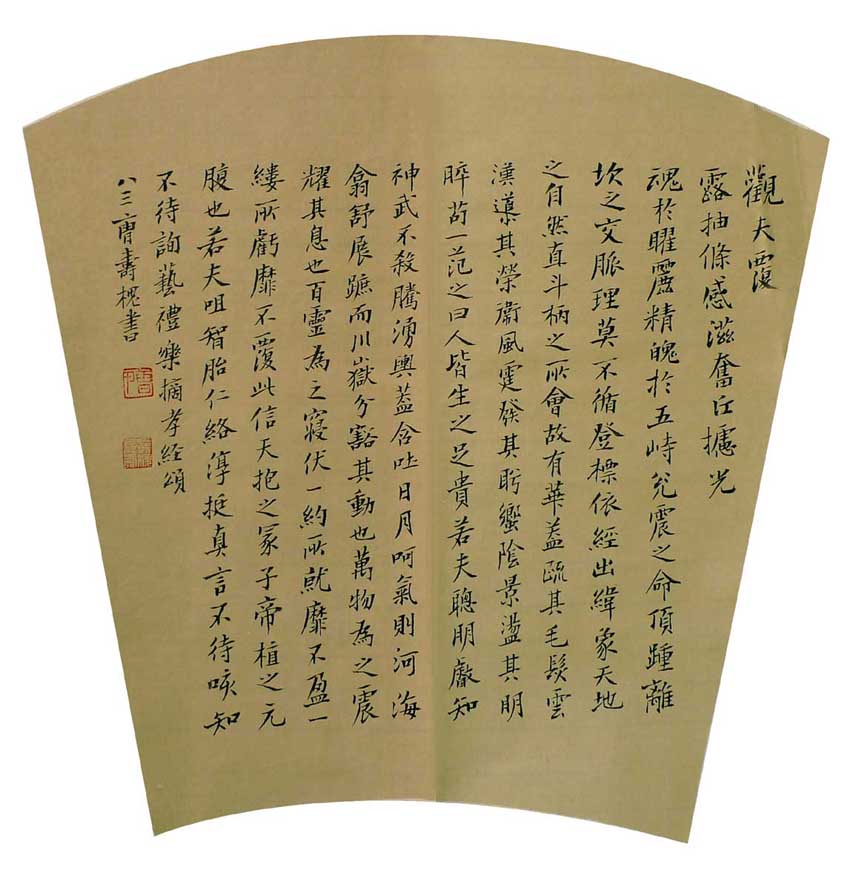 觀夫覆
露抽條感滋奮丘攄光
魂於曜靈精魄於五峙兌震之命頂踵離
坎之交脈理莫不循登標依經出緯象天地
之自然直斗柄之所會故有華蓋疏其毛髮雲
漢導其榮衞風霆發其肹蠁陰景盪其明
晬苟一范之曰人皆生之足貴若夫聰明叡知
神武不殺騰湧輿蓋含吐日月呵氣則河海
翕舒展蹠而川嶽分豁其動也萬物為之震
耀其息也百靈為之寢伏一約所就靡不盈一
縷所虧靡不覆此信天抱之冢子帝植之元
腹也若夫咀智胎仁絡淳挺真言不待咳知
不待詢藝禮樂摘孝經頌
八三曹壽槐書